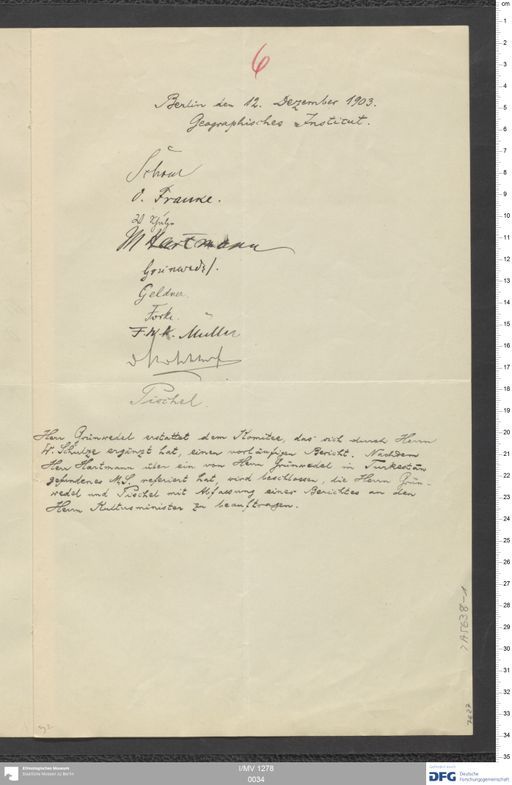 6
Berlin den 12. Dezember 1903.
Geographisches Institut.
O. Franke.
W Schulze
M Hartmann
Grünwedel.
Geldner.
Forke.
F. W. K. Müller
Pischel
Herr Grünwedel erstattet dem Komitee, das sich durch Herrn
W. Schulze ergänzt hat, einen vorläufigen Bericht. Nachdem
Herr Hartmann über ein von Herrn Grünwedel in Turkestan
gefundenes M.S. referiert hat, wird beschlossen, die Herrn Grün-
wedel und Pischel mit Abfassung eines Berichtes an den
Herrn Kultusminister zu beauftragen.
Ethnologisches Museum
Staatliche Museen zu Berlin
I/MV 1278
0034
Gefördert durch
DFG Deutsche
Forschungsgemeinschaft
cm
1
2
3
4
5
6
7
8
9
10
11
12
13
14
15
16
17
18
19
20
21
22
23
24
25
26
27
28
29
30
31
32
33
34
35